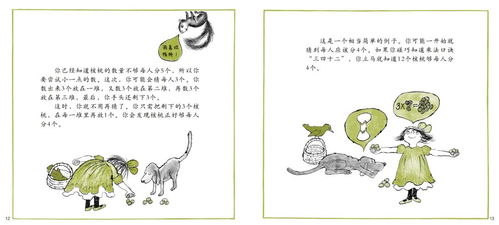 你已经知道核桃的数量不够每人分5个，所以你
要尝试小一点的数，这次，你可能会猜每人3个。你
数出来3个放在一堆，又数3个放在第二堆，再数3个
放在第三堆，最后，你手头还剩下3个。
这时，你就不用再猜了，你只需把剩下的3个核
桃，在每一堆里再放1个，你会发现核桃正好够每人
分4个。
12
这是一个相当简单的例子，你可能一开始就
猜到每人应该分4个。如果你碰巧知道乘法口诀
“三四十二”，你立马就知道12个核桃够每人分
4个。
3x?=
13